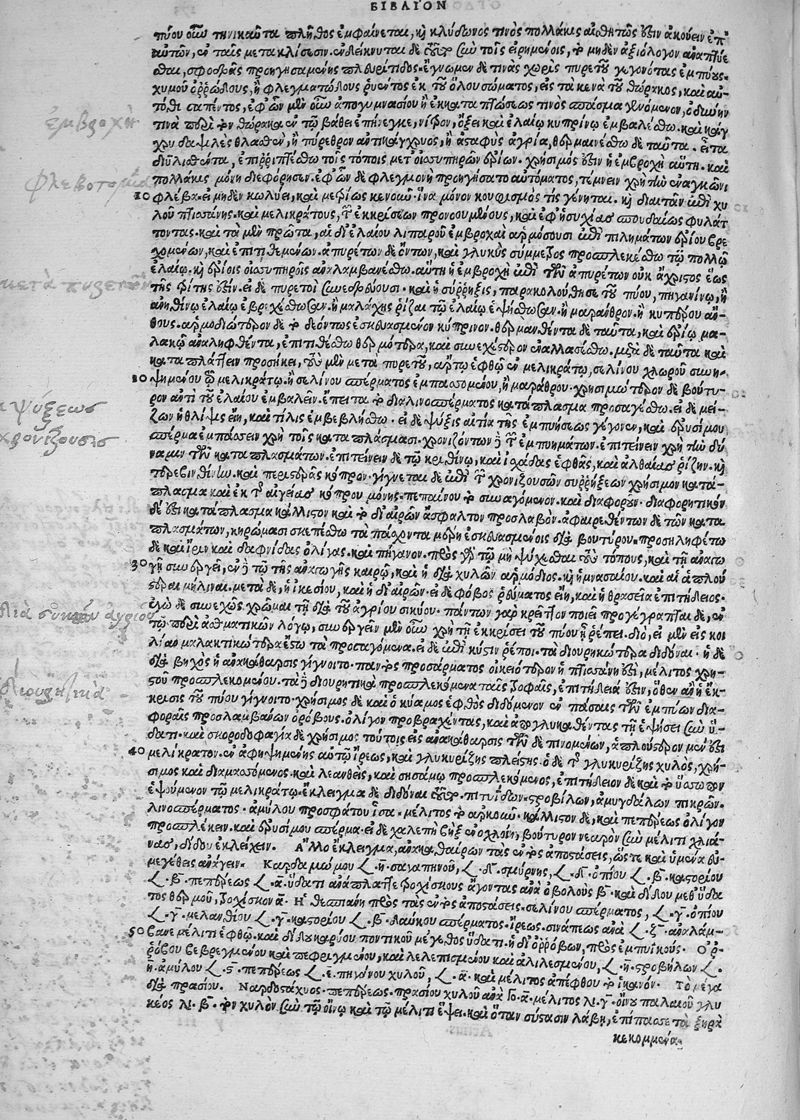 ΒΙΒΛΙΟΝ
πύου οὕτω τηνικαῦτα πλῆθος ἐμφαίνεται, καὶ κλύδωνος τινὸς πολλάκις αἰσθητῶς ἐστιν ἀκούειν ἐπ'
αὐτῶν, ἐν ταῖς μετακλίσεσιν. ἐνδείκνυται δὲ σὺν τοῖς εἰρημένοις, τὸ μηδὲν ἀξιόλογον ἀναπτύε
σθαι, σφοδρᾶς προηγησαμένης πλευρίτιδος. ἔγνωμεν δέ τινας χωρὶς πυρετοῦ γεγονότας ἐμπύους.
χυμοῦ ὀρρώδους, ἢ φλεγματώδους ῥυέντος ἐκ τοῦ ὅλου σώματος, εἰς τὰ κενὰ τοῦ θώρακος, καὶ αὐ
τόθι σαπέντος, ἐφ' ὧν μὲν οὖν ἀπὸ γυμνασίου ἢ ἐκ καταπτώσεως τινὸς σπάσμα γενόμενον, ὀδύνην
τινὰ περὶ τὸν θώρακα ἐν τῷ βάθει ἐπήνεγκε, νίτρον, ὄξει καὶ ἐλαίῳ κυπρίνῳ ἐμβαλέσθω. καὶ κάγ
χρυ δαψιλὲς θλασθὲν, ἢ πύρεθρον ἀντὶ κάγχρυος, ἢ ἀσταφὶς ἀγρία, θερμαινέσθω δὲ ταῦτα. εἶτα
διυλισθέντα, ἐπιρριπτέσθω τοῖς τόποις μετ' οἰσυπηρῶν ἐρίων. χρήσιμός ἐστιν ἡ ἐμβροχὴ αὕτη. καὶ
πολλάκις μόνη διεφόρησεν. ἐφ' ὧν δὲ φλεγμονὴ προηγήσατο αὐτόματος, τέμνειν χρὴ τὴν ἐν ἀγκῶνι
10 φλέβα. εἰ μηδὲν κωλύει, καὶ μετρίως κενοῦν. ἵνα μόνον κουφισμός τις γένηται. καὶ διαιτᾶν ἐπὶ χυ
λοῦ πτισάνης. καὶ μελικράτους, τῶν ἐκκρίσεων προνοουμένους, καὶ ἐφ' ἡσυχίας σπουδαίως φυλάτ
τοντας. καὶ τὰ μὲν πρῶτα, αἱ δι' ἐλαίου λιπαροῦ ἐμβροχαὶ ἁρμόσουσι ἐπὶ πιλημάτων ἐρίου βρε
χομένων, καὶ ἐπιτιθεμένων. ἀπυρέτων δὲ ὄντων, καὶ γλυκὺς σύμμετρος προσπλεκέσθω τῷ πολλῷ
ἐλαίῳ. καὶ ἐρίοις οἰσυπηροῖς ἀναλαμβανέσθω. αὕτη ἡ ἐμβροχὴ ἐπὶ τῶν ἀπυρέτων οὐκ ἄχρηστος ἕως
τῆς τρίτης ἐστίν. εἰ δὲ πυρετοὶ συνεδρεύουσι. καὶ ἡ σύρρηξις, παρακολουθήσει τοῦ πύου, πηγανίνῳ, ἢ
ἀνηθίνῳ ἐλαίῳ ἐμβρεχέσθωσαν. ἢ μαλάχης ῥίζαι τῷ ἐλαίῳ ἑψέσθωσαν. ἢ μαράθρου. ἢ κυπέρου ἄν
θους. ἁρμοδιώτερον δὲ τὸ δεόντως ἐσκευασμένον κύπρινον. θερμανθέντα δὲ ταῦτα, καὶ ἐρίῳ μα
λακῷ ἀναληφθέντα, ἐπιτιθέσθω θερμότερα, καὶ συνεχέστερον ἐναλλασέσθω. μετὰ δὲ ταῦτα καὶ
καταπλάττειν προσήκει, τοὺς μὲν μετὰ πυρετοῦ, ἄρτῳ ἑφθῷ ἐν μελικράτῳ, σελίνου χλωροῦ συνη-
20 ψημένου τῷ μελικράτῳ. ἢ σελίνου σπέρματος ἐμπασσομένου, ἢ μαράθρου. χρησιμώτερον δὲ βούτυ-
ρον ἀντὶ τοῦ ἐλαίου ἐμβαλεῖν. ἔπειτα τὸ διὰ λινοσπέρματος κατάπλασμα προσαγέσθω. εἰ δὲ μεί-
ζων ἡ θλῖψις εἴη, καὶ τῆλις ἐμβεβλήσθω. εἰ δὲ ψῦξις αἰτία τῆς ἐμπυήσεως γέγονεν, καὶ ἐρυσίμου
σπέρμα ἐμπάσσειν χρὴ τοῖς καταπλάσμασι. χρονιζόντων δὲ τῶν ἐμπυημάτων. ἐπιτείνειν χρὴ τὴν δύ
ναμιν τῶν καταπλασμάτων. ἐπιτείνειν δὲ τῷ κριθίνῳ, καὶ ἰσχάδας ἑφθὰς, καὶ ἀλθαίας ῥίζην. καὶ
τερεβινθίνην. καὶ περιστερᾶς κόπρον. γίγνεται δὲ ἐπὶ τῶν χρονιζουσῶν συρρήξεων χρήσιμον κατά-
πλασμα καὶ ἐκ τῆς αἰγείας κόπρου μόνης. πεπαῖνον τὸ συναγόμενον. καὶ διαφοροῦν. διαφορητικὸν
δέ ἐστι κατάπλασμα κάλλιστον καὶ τὸ δι' αἰρῶν ἄσφαλτον προσλαβόν. ἀφαιρεθέντων δὲ τῶν κατα
πλασμάτων, κηρώμασι σκεπέσθω τὰ πάσχοντα μέρη ἐσκευασμένοις διὰ βουτύρου. προσειληφέτω
δὲ καὶ ἶριν καὶ δαφνίδας ὀλίγας. καὶ πήγανον. πρὸς γὰρ τῷ μὴ ψύχεσθαι τοὺς τόπους, καὶ τῇ ἀναγω
30 γῇ συνεργεῖ, ἐν δὲ τῷ τῆς ἀναγωγῆς καιρῷ, καὶ ἡ διὰ χυλῶν ἁρμόδιος. καὶ ἡ μνασαίου. καὶ αἱ ἁπλού
στεραι μήλιναι. μετὰ δὲ, ἡ ἱκεσίου, καὶ ἡ δι' αἰρῶν. εἰ δὲ φόβος ῥεύματος εἴη, καὶ ἡ θρασεῖα ἐπιτήδειος.
ἐγὼ δὲ συνεχῶς χρῶμαι τῇ διὰ τοῦ ἀγρίου σικύου. πάντων γὰρ κρεῖττον ποιεῖ προγέγραπται δὲ, ἐν
τῷ περὶ ἀσθματικῶν λόγῳ, συνεργεῖν μὲν οὖν χρὴ τῇ ἐκκρίσει τοῦ πύου ᾗ ῥέπει. διὸ, εἰ μὲν εἰς κοι
λίαν μαλακτικώτερα ἔστω τὰ προσαγόμενα. εἰ δὲ ἐπὶ κύστιν ῥέποι. τὰ διουρητικώτερα διδόναι. εἰ δὲ
διὰ βηχὸς ἡ ἀνακάθαρσις γίγνοιτο. παντὸς προσάρματος οἰκειότερον ἡ πτισάνη ἐστι, μέλιτος χρη-
στοῦ προσπλεκομένου. τὰ δὲ διουρητικὰ προσπλεκόμενα ταῖς τροφαῖς, ἐπιτήδειά ἐστιν, ὅθεν ἂν ἡ ἔκ-
κρισις τοῦ πύου γίγνοιτο. χρήσιμος δὲ καὶ ὁ κύαμος ἑφθὸς διδόμενον ἐν πάσαις τῶν ἐμπύων δια-
φοραῖς προσλαμβάνων ὀρόβους. ὀλίγον προβραχέντας, καὶ ἀπογλυκανθέντας τῇ ἑψήσει σὺν ὕ-
δατι. καὶ σκοροδοφαγία δὲ χρήσιμος τούτοις εἰς ἀνακάθαρσιν τῶν δὲ πινομένων, ἁπλούστερον μέν ἐστι
40 μελίκρατον. ἐναφηψημένης αὐτῷ ἴρεως, καὶ γλυκυρίζης πλείστης. ὁ δὲ τῆς γλυκυρίζης χυλὸς, χρή-
σιμος καὶ διαμασώμενος. καὶ λεανθεὶς, καὶ σησάμῳ προσπλεκόμενος, ἐπιτήδειον δὲ καὶ τὸ ὕσσωπον
ἑψούμενον τῷ μελικράτῳ. ἔκλειγμα δὲ διδόναι πιτυΐδων. στροβίλων, ἀμυγδάλων πικρῶν.
λινοσπέρματος. ἀμύλου προσφάτου ἴσα. μέλιτος τὸ ἀρκοῦν. κάλλιον δὲ, καὶ πεπέρεως ὀλίγον
προσπλέκειν. καὶ ἐρυσίμου σπέρμα. εἰ δὲ χαλεπὴ βὴξ ἐνοχλοίη, βούτυρον νεαρὸν σὺν μέλιτι χλιά-
νας, δίδου ἐκλείχειν. Ἄλλο ἔκλειγμα, ἀνακαθαῖρον τὰς ἐντὸς ἀποστάσεις, ὥστε καὶ ὑμένα εὐ-
μεγέθεις ἀνάγειν. Καρδαμώμου 𐅻 η σαγαπηνοῦ, 𐅻 δ σμύρνης, 𐅻 δ ὀπίου 𐅻 β καστορίου
𐅻 β πεπέρεως 𐅻 α ὕδατι ἀναπλάττε τροχίσκους ἄγοντας ἀνὰ ὀβολοὺς β καὶ δίδου μεθ' ὕδα
τος θερμοῦ, τροχίσκον α. Ἡ θεσπιανὴ πρὸς τὰς ἐντὸς ἀποστάσεις. σελίνου σπέρματος, 𐅻 γ ὀπίου
𐅻 γ μελανθίου 𐅻 γ καστορίου 𐅻 β δαύκου σπέρματος. ἴρεως. σινάπεως ἀνὰ 𐅻 ζ ἀναλάμ-
50 βανε μέλιτι ἑφθῷ. καὶ δίδου καρύου ποντικοῦ μέγεθος ὕδατι. ἢ δι' ὀρρόβων, πρὸς ἐμπυϊκούς. Ὀρ-
ρόβου βεβρεγμένου καὶ πεφρυγμένου, καὶ λελεπισμένου καὶ ἀληλεσμένου, 𐅻 η στροβίλων 𐅻
η ἀμύλου 𐅻 ϛ πεπέρεως 𐅻 ε πηγάνου χυλοῦ, 𐅻 α καὶ μέλιτος ἀπέφθου τὸ ἱκανόν. Τὸ μέγα
διὰ πρασίου. Ναρδοστάχυος. πεπέρεως. πρασίου χυλοῦ ἀνὰ Γο α μέλιτος λι γ οἴνου παλαιοῦ γλυ
κέος λι β τὸν χυλὸν σὺν τῷ οἴνῳ καὶ τῷ μέλιτι ἕψει. καὶ ὅταν σύστασιν λάβῃ, ἐπίπασσε τὰ ξηρὰ
κεκομμένα.
ἐμβροχὴ
φλεβοτομία
μετὰ πυρετῶν
ψύξεως
χρονίζουσιν
διὰ σικύου ἀγρίου
διουρητικὰ